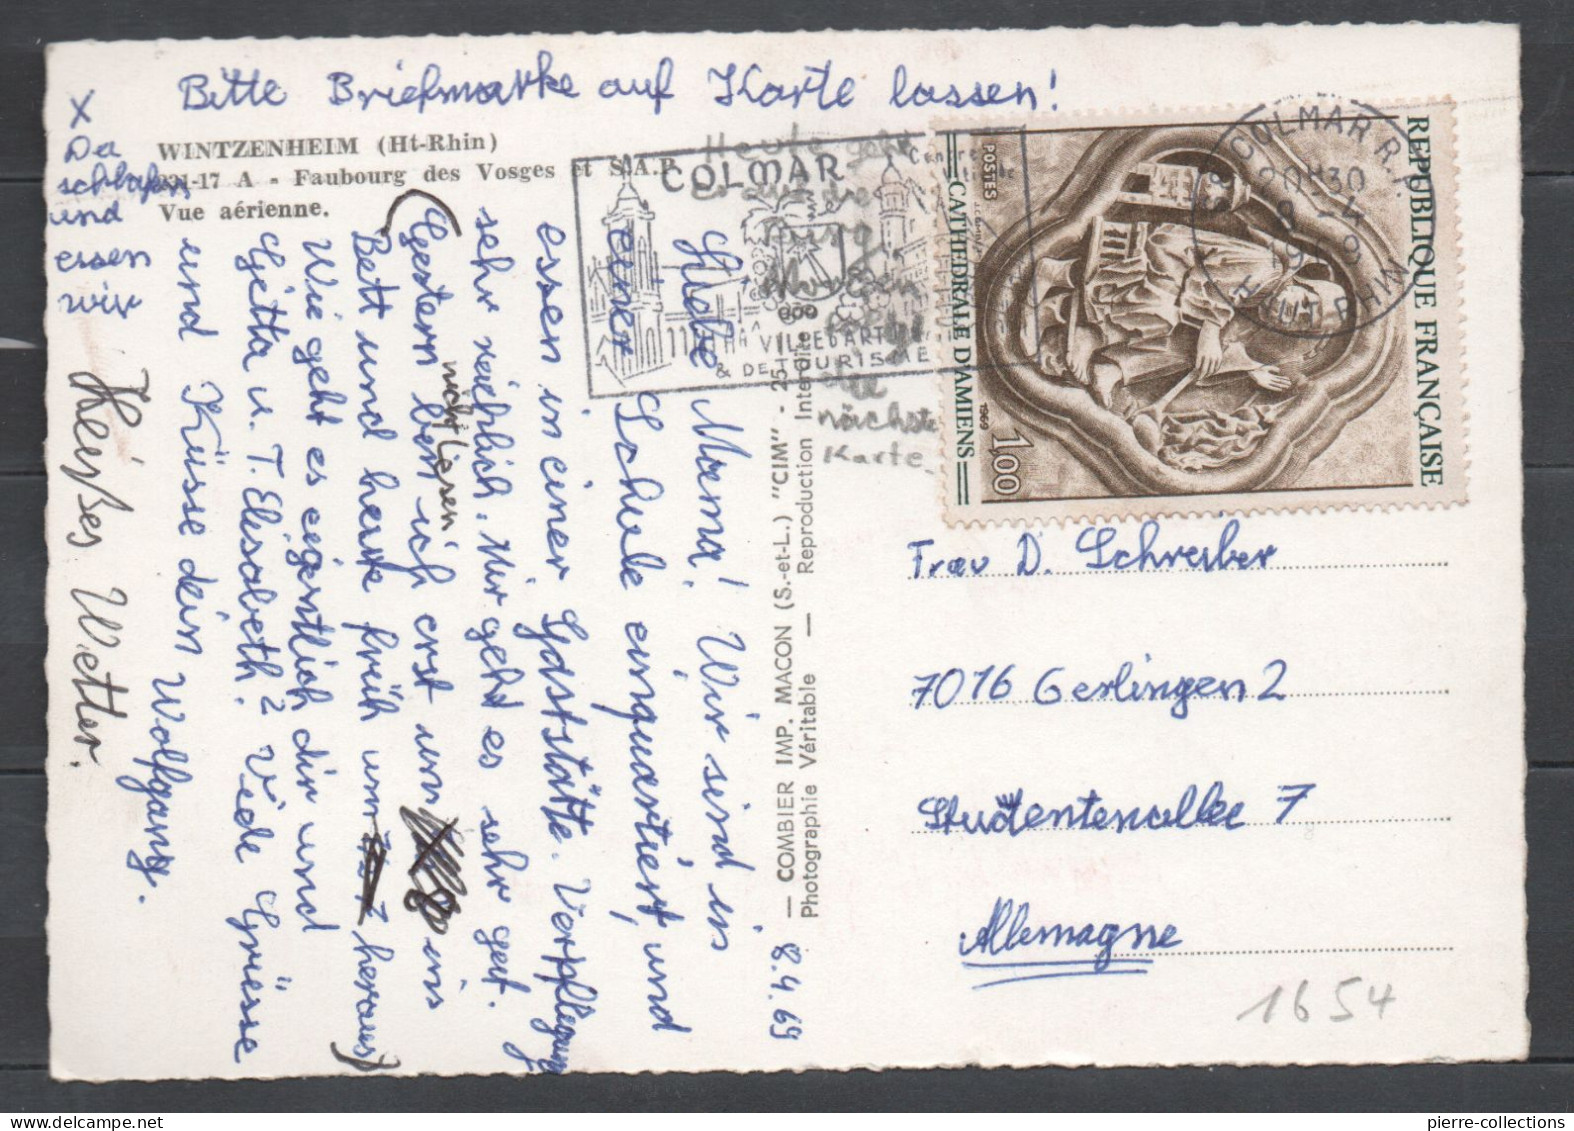 Bitte Briefmarke auf Karte lassen!
x
Da
schlafen
und
essen
wir
WINTZENHEIM (Ht-Rhin)
221-17 A - Faubourg des Vosges et S.A.P.
Vue aérienne.
8.4.69
Liebe Mama! Wir sind in
einer Schule einquartiert, und
essen in einer Gaststätte. Verpflegung
sehr reichlich. Mir geht es sehr gut.
(Gestern bin ich erst um 8 ins
nicht lesen
Bett und heute früh um 7 heraus)
Wie geht es eigentlich dir und
Gitta u. T. Elisabeth? Viele Grüsse
und Küsse dein Wolfgang.
Heißes Wetter.
Heute geht
Burg
Morgen
die
nächste
Karte.
COLMAR
Centre
VILLE D'ART
& DE TOURISME
— COMBIER IMP. MACON (S.-et-L.) "CIM" - 25-
Photographie Véritable — Reproduction Interdite
REPUBLIQUE FRANÇAISE
POSTES
CATHEDRALE D'AMIENS
1969
1,00
COLMAR R.P.
20H30
8 -4
1969
HAUT RHIN
Frau D. Schreiber
7016 Gerlingen 2
Studentenallee 7
Allemagne
1654
pierre-collections